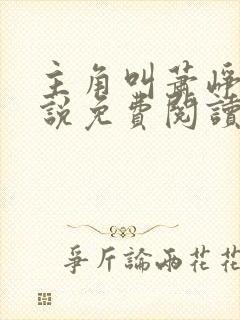 主角叫蕭崢
說免費閱讀
爭斤論兩花花